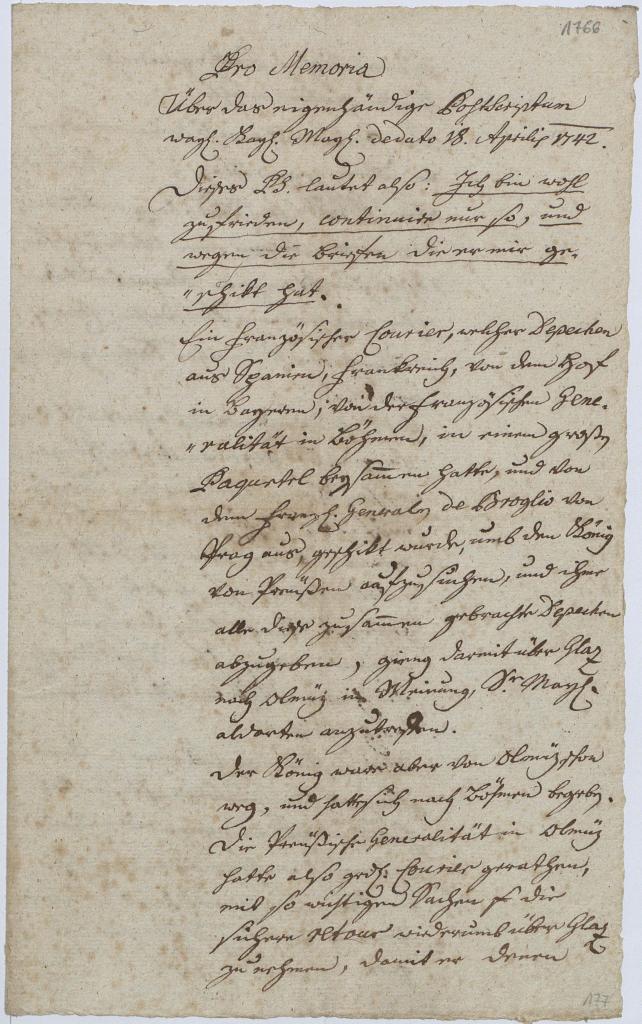 1766
Pro Memoria
Über das eigenhändige Postscriptum
Kayl. Mayl. de dato 18. Aprilis 1742.
Dieses PS. lautet also: Ich bin wohl
zufrieden, continuire nur so, und
wegen die briefen die er mir ge-
"schikt hat.
Ein französischer Courier, welcher Depechen
aus Spanien, Frankreich, von dem Hof
in Bayeren, von der französischen Gene-
"ralität in Böhmen, in einem großen
Paquetel beysammen hatte, und von
dem General de Broglio von
Prag aus, geschikt wurde, umb den König
von Preüßen aufzusuchen, und ihme
alle diese zusammen gebrachte Depechen
abzugeben, gieng darmit über Glaz
nach Olmüz in Meinung, Sr. Mayl.
aldorten anzutreffen.
Der König ware aber von Olmüz schon
weg, und hatte sich nach Böhmen begeben.
Die Preüßische Generalität in Olmüz
hatte also Courier gerathen,
mit so wichtigen Sachen die
sichere retour wiederumb über Glaz
zu nehmen, damit er denen
177